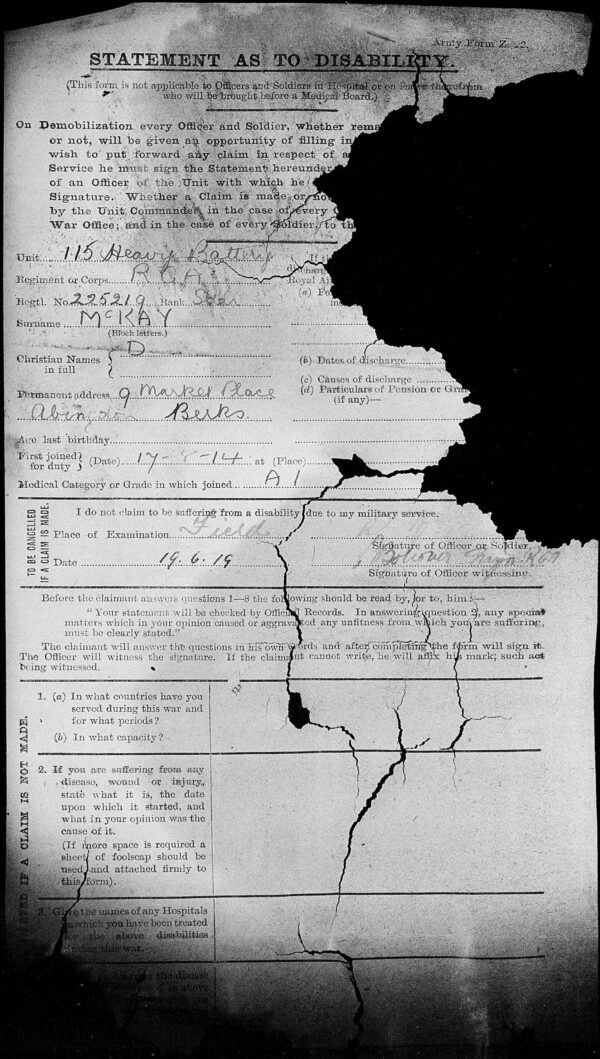 Army Form Z. 22.
STATEMENT AS TO DISABILITY.
(This form is not applicable to Officers and Soldiers in Hospital or on leave therefrom
who will be brought before a Medical Board.)
On Demobilization every Officer and Soldier, whether
or not, will be given an opportunity of filling in
wish to put forward any claim in respect of
Service he must sign the Statement hereunder
of an Officer of the Unit with which he
Signature. Whether a Claim is made or not
by the Unit Commander, in the case of every
War Office; and in the case of every Soldier, to
Unit 115 Heavy Battery
Regiment or Corps R.G.A.
Regtl. No. 225219 Rank
Surname McKAY
(Block letters.)
Christian Names in full D
Permanent address 9 Market Place
Abingdon Berks
Age last birthday
First joined for duty (Date) 17-8-14 at (Place)
Medical Category or Grade in which joined A 1
(a)
(b) Dates of discharge
(c) Causes of discharge
(d) Particulars of Pension or
(if any)—
TO BE CANCELLED
IF A CLAIM IS MADE.
I do not claim to be suffering from a disability due to my military service.
Place of Examination Field
Signature of Officer or Soldier.
Date 19.6.19
Signature of Officer witnessing.
Before the claimant answers questions 1—8 the following should be read by, or to, him:—
"Your statement will be checked by Official Records. In answering question 2, any special
matters which in your opinion caused or aggravated any unfitness from which you are suffering,
must be clearly stated."
The claimant will answer the questions in his own words and after completing the form will sign it.
The Officer will witness the signature. If the claimant cannot write, he will affix his mark; such act
being witnessed.
IF A CLAIM IS NOT MADE.
1. (a) In what countries have you
served during this war and
for what periods?
(b) In what capacity?
2. If you are suffering from any
disease, wound or injury,
state what it is, the date
upon which it started, and
what in your opinion was the
cause of it.
(If more space is required a
sheet of foolscap should be
used and attached firmly to
this form).
3. Give the names of any Hospitals
in which you have been treated
for the above disabilities
during this war.
the disease
in above